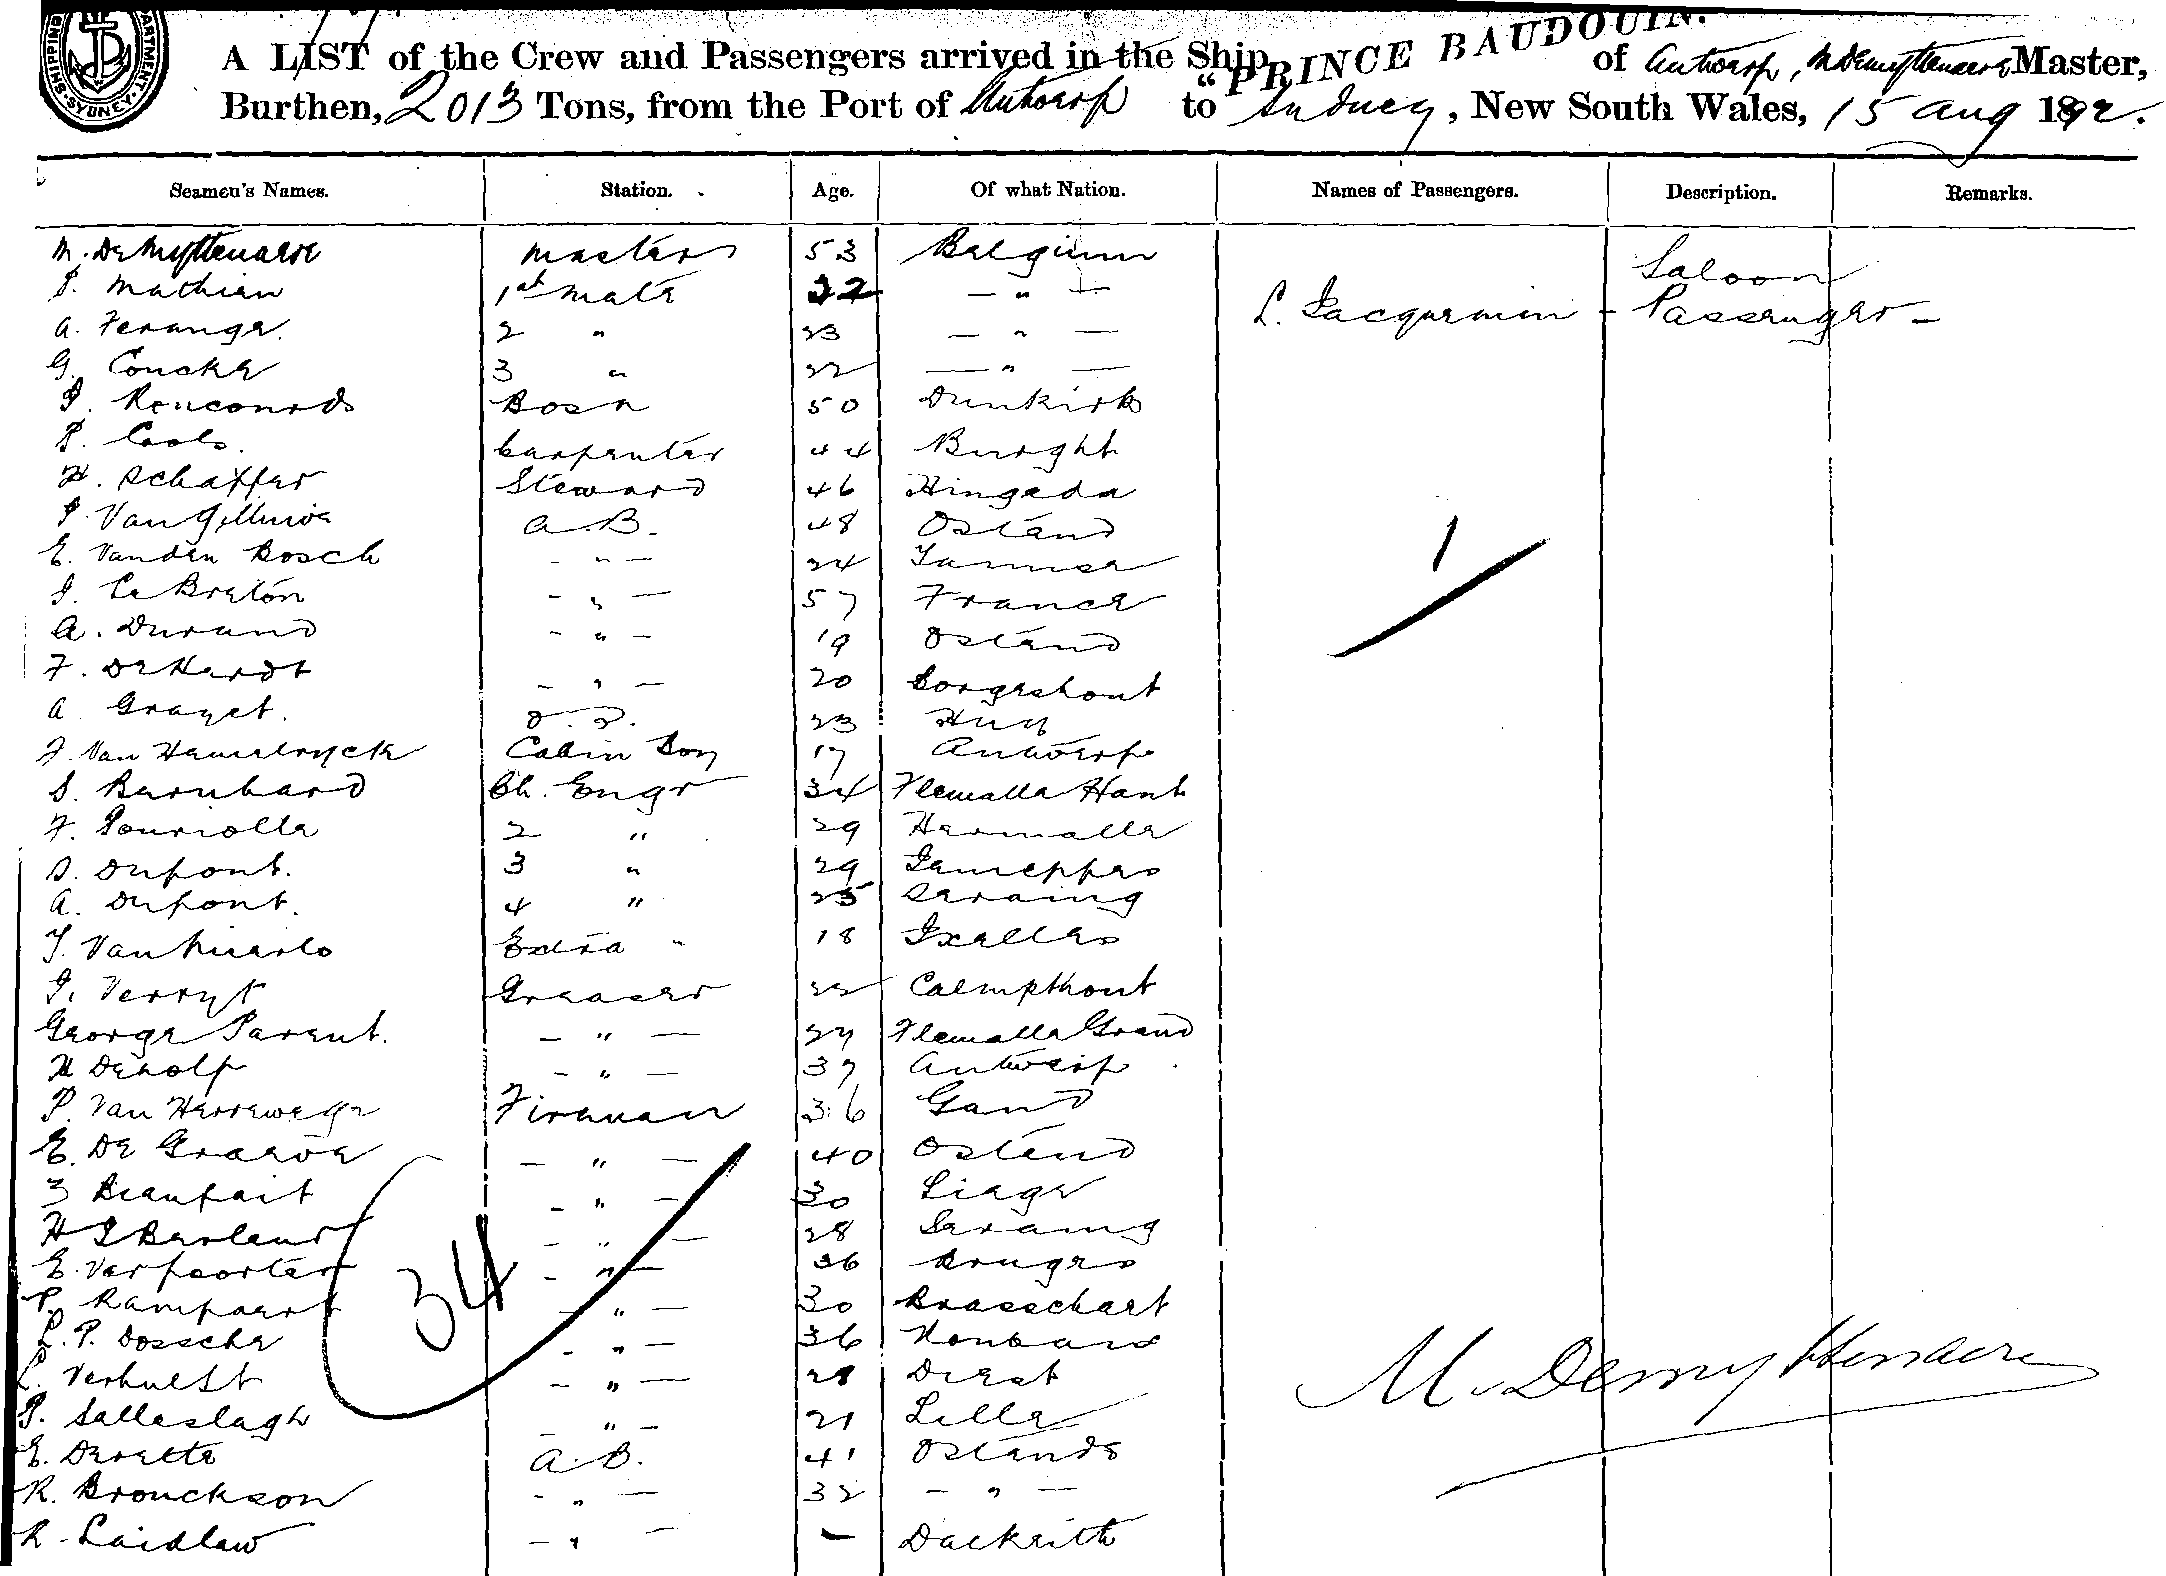 SHIPPING DEPARTMENT. SYDNEY.
A LIST of the Crew and Passengers arrived in the Ship "PRINCE BAUDOUIN. of Antwerp, M Demyttenaere Master,
Burthen, 2013 Tons, from the Port of Antwerp to Sydney, New South Wales, 15 Aug 1892.
Seamen's Names. Station. Age. Of what Nation. Names of Passengers. Description. Remarks.
M. Demyttenaere Master 53 Belgium
Mathieu 1st Mate 22 — " — Saloon
A. 2 " 23 — " — L. Jacquemin - Passenger -
G. Concke 3 " 22 — " —
Bosn 50 Dunkirk
P. Cools. Carpenter 44 Burght
H. Schaffer Steward 46
A.B. 48 Ostend
E. Vanden Bosch - " — 24
J. Le Breton - " — 57 France
A. Durand - " — 19 Ostend
F. - " — 20 Borgerhout
A. O.S. 23 Huy
F. Van Hamelryck Cabin Boy 17 Antwerp
Bernhard Ch. Engr 34 Flemalle Haut
F. 2 " 29 Hermalle
Dupont. 3 " 29
A. Dupont. 4 " 25 Seraing
Extra " 18 Ixelles
J. Verryt Greaser 22 Calmpthout
George Parent. — " — 27 Flemalle Grand
H Dewolf - " — 37 Antwerp
P. Van Herrewege Fireman 36 Gand
E. De Graeve — " — 40 Ostend
Beaufait - " — 30 Liege
H J - " — 28 Seraing
E. Verpoorter - " — 36 Bruges
P. Rampaert - " — 30 Brasschaet
L. P. Dossche - " — 36
L. Verhulst - " — Diest
P. Sallaslagh - " — 21 Lille
E. A.B. 41 Ostende
R. Bronckson - " — 32 — " —
R. Laidlaw - " — —
1
34
M. Demyttenaere